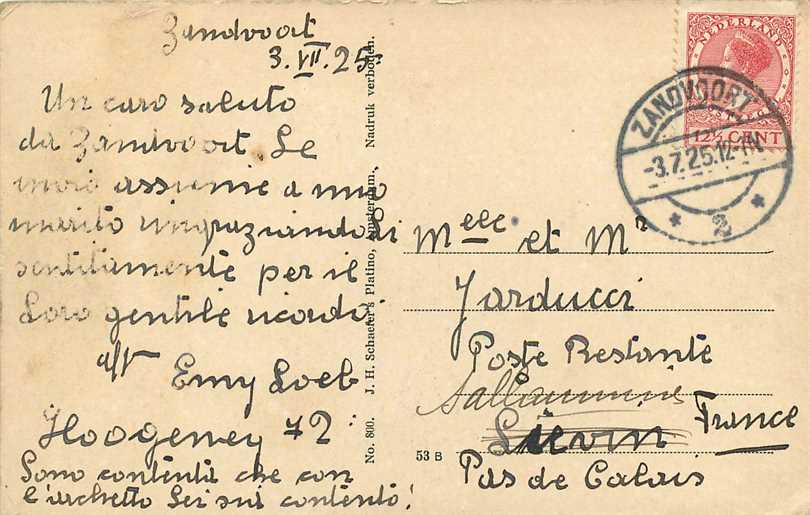 Zandvoort
3.VII.25.
Un caro saluto
da Zandvoort Le
invio assieme a mio
marito ringraziandoli
sentitamente per il
Loro gentile ricordo
aff Emy Loeb
Hoogeweg 72
Sono contenta che con
l'archetto Lei sia contento!
No. 800. J. H. Schaefer's Platino, Amsterdam. Nadruk verboden.
NEDERLAND
12½ CENT
ZANDVOORT
-3.7.25.12-1N
* 2 *
Melle et Mr
Jarducci
Poste Restante
Sallaumines
Liévin France
Pas de Calais
53 B